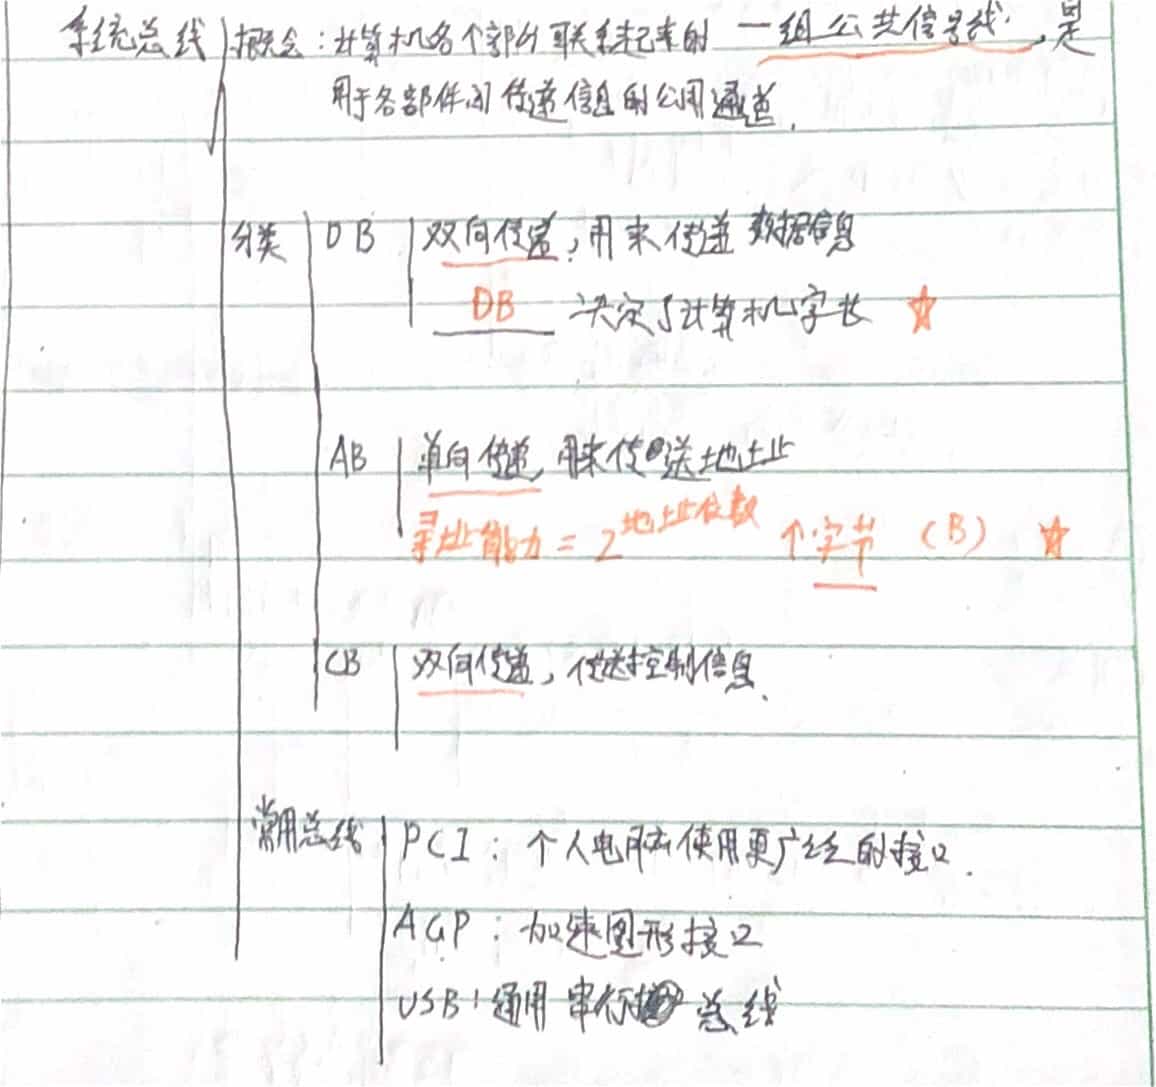 系统总线 概念：计算机各个部分联系起来的 一组公共信号线，是
用于各部件间传递信息的公用通道.
分类 DB 双向传递，用来传递 数据信息
DB 决定了计算机字长 ☆
AB 单向传递，用来传送地址
寻址能力 = 2^地址位数 个字节 (B) ☆
CB 双向传递，传送控制信息.
常用总线 PCI：个人电脑使用更广泛的接口.
AGP：加速图形接口
USB：通用串行总线